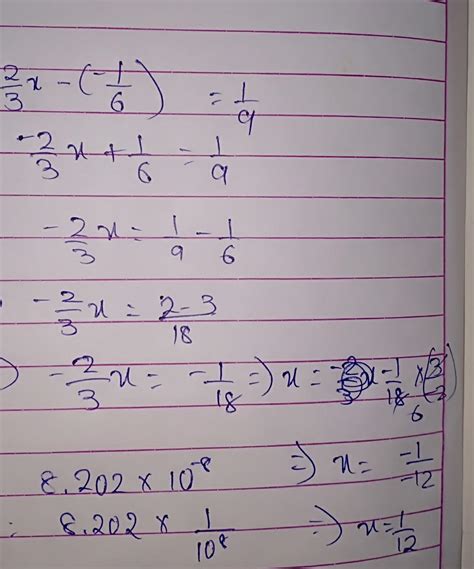 2/3 x - (-1/6) = 1/9
-2/3 x + 1/6 = 1/9
-2/3 x = 1/9 - 1/6
-2/3 x = 2-3/18
) -2/3 x = -1/18 => x = -1/18 × (3/
6
8.202 × 10^-8 => x = -1/-12
: 8.202 × 1/10^8 => x = 1/12